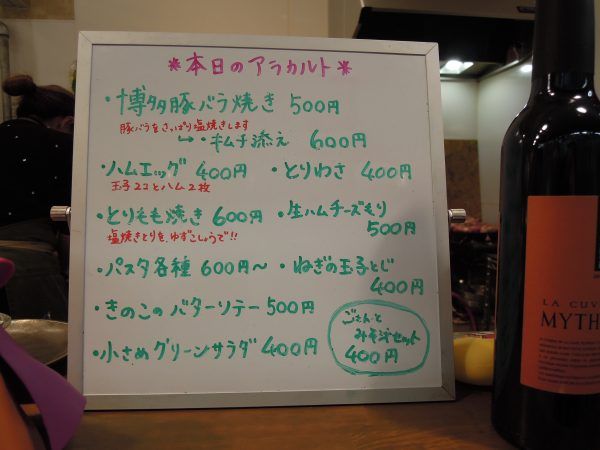 *本日のアラカルト*
・博多豚バラ焼き 500円
豚バラをさっぱり塩焼きします
→・キムチ添え 600円
・ハムエッグ 400円 ・とりわさ 400円
玉子2コとハム2枚
・とりもも焼き 600円 ・生ハムチーズもり
500円
塩焼きとりを、ゆずこしょうで!!
・パスタ各種 600円〜 ・ねぎの玉子とじ
400円
・きのこのバターソテー 500円
・小さめグリーンサラダ 400円
ごはんと
みそ汁セット
400円
LA CUV
MYTH